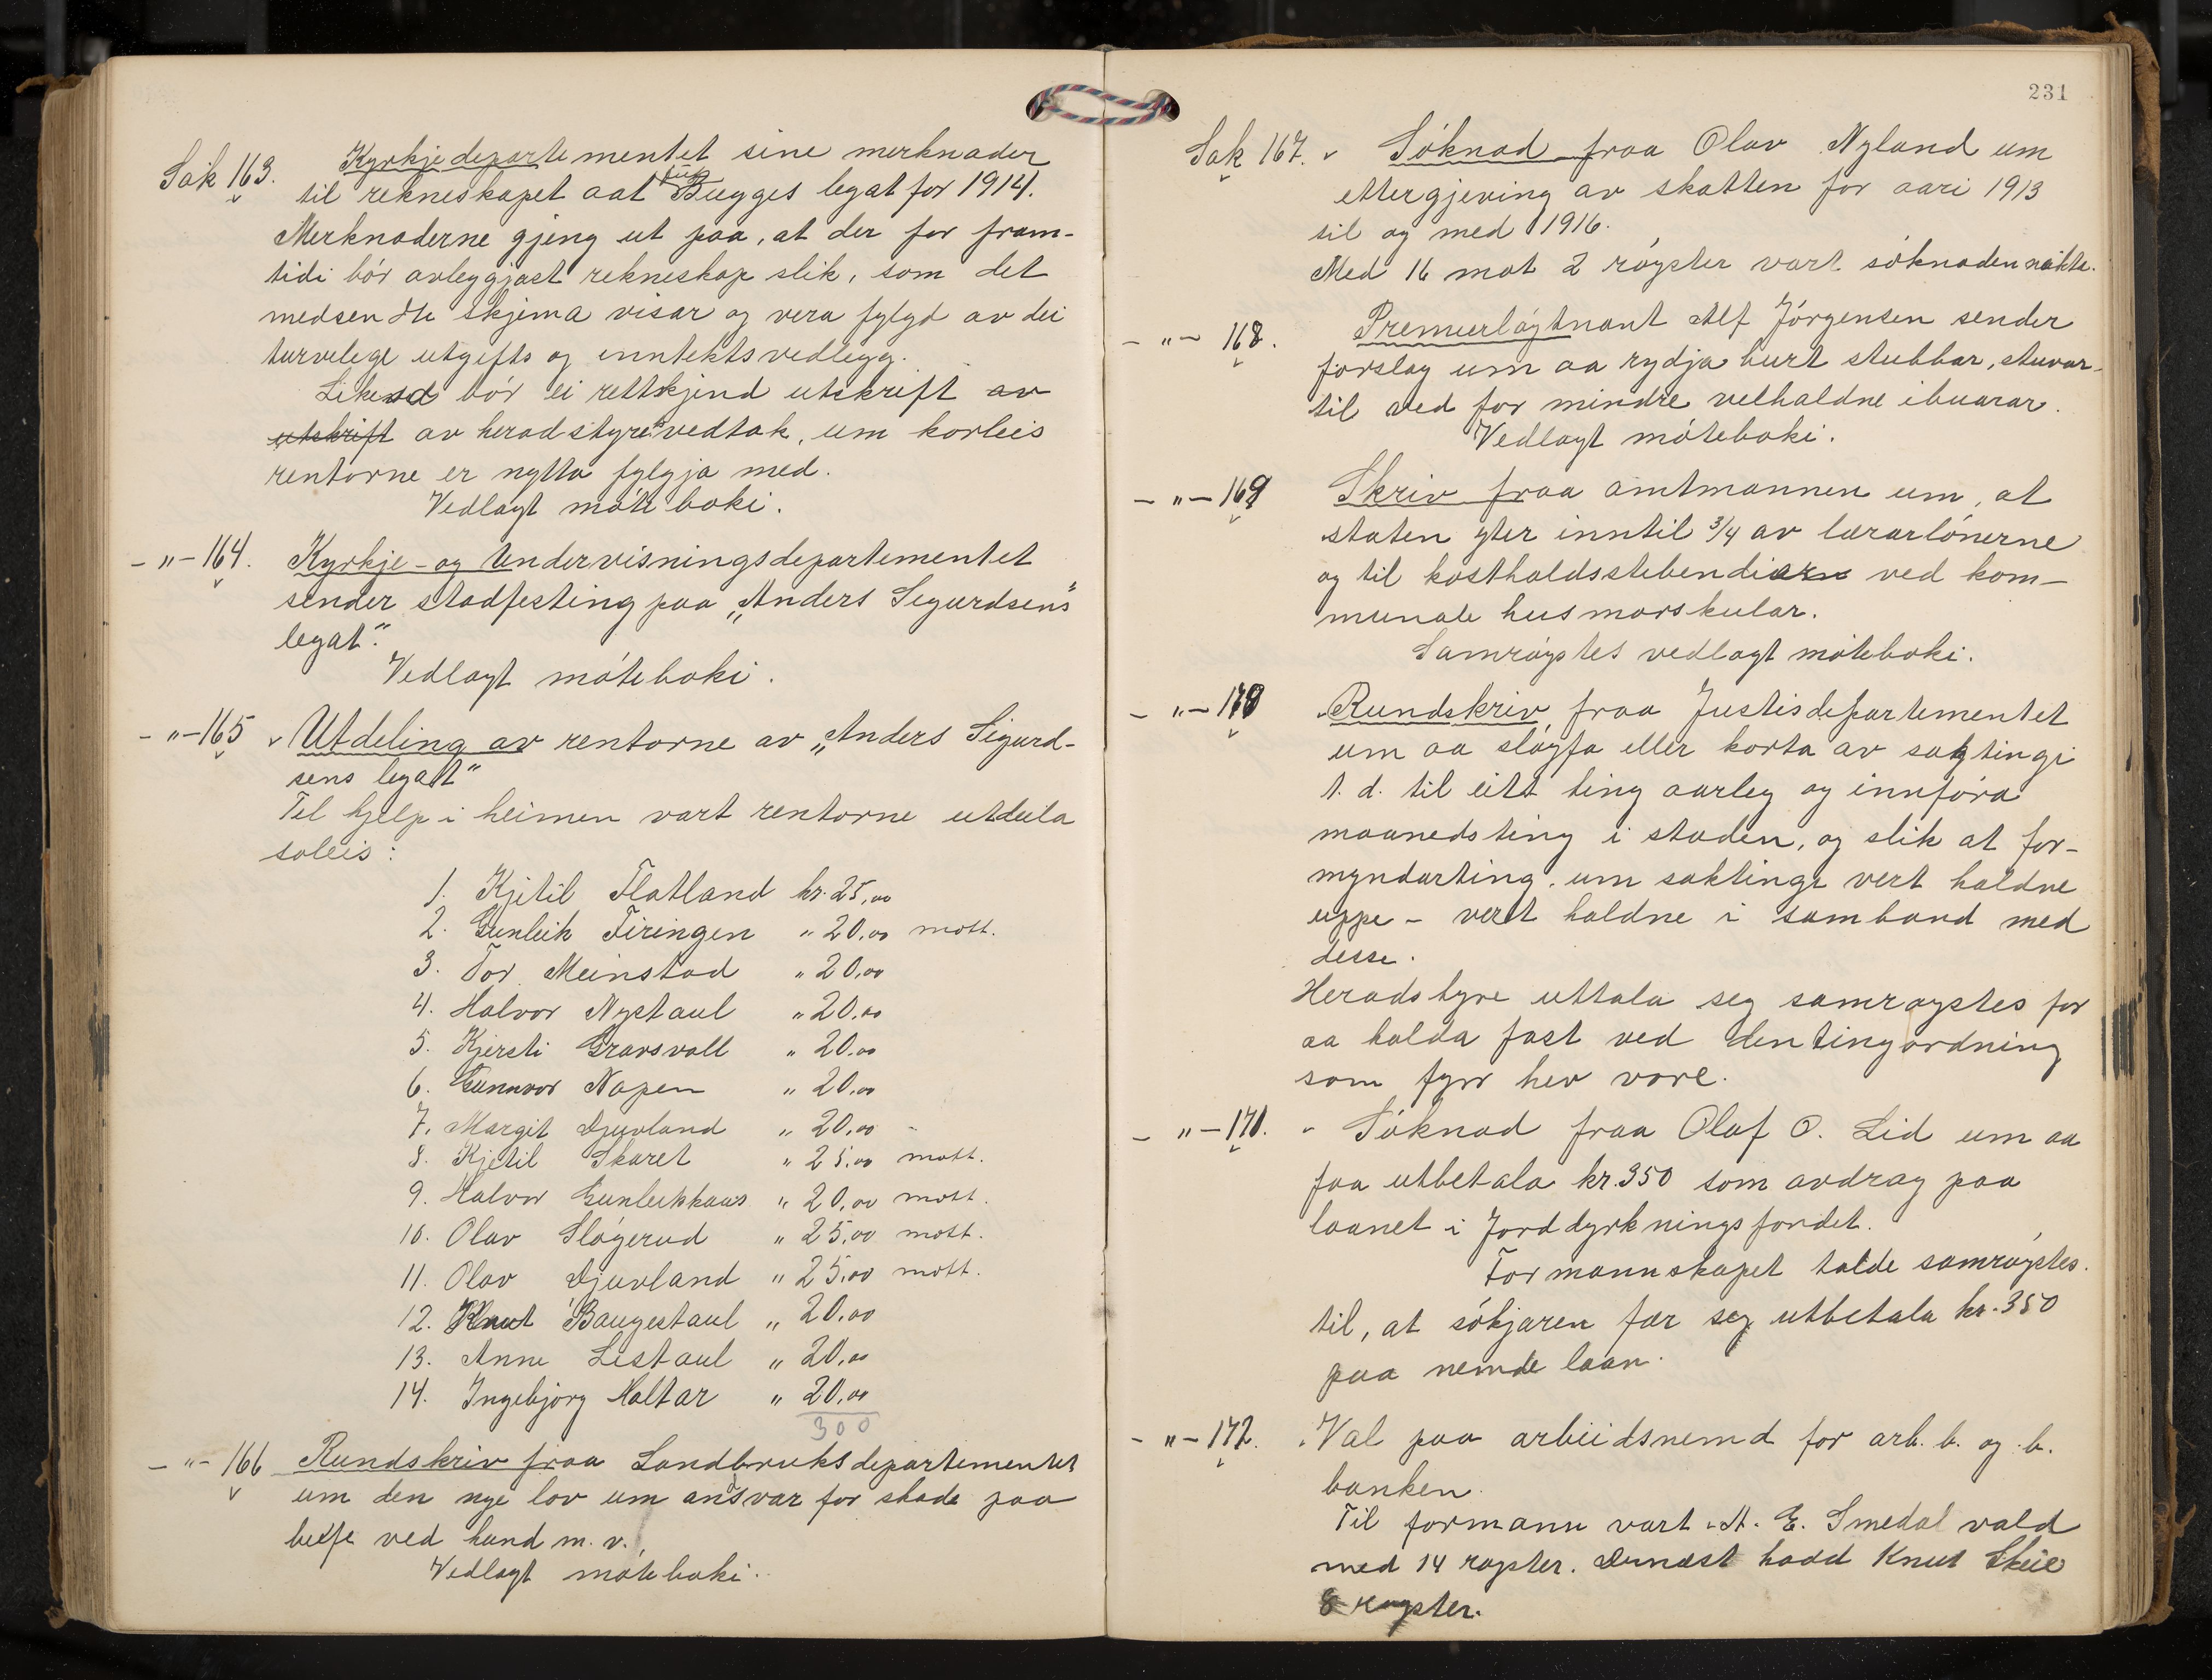 Sak 163. Kyrkjedepartementet sine merknader
til rekneskapet aat Bugges legat for 1914.
Merknaderne gjeng ut paa, at der for fram-
tidi bór avleggjast rekneskap slik, som det
medsendte skjema visar og vera fylgd av dei
turvelege utgifts og inntektsvedlegg.
Likeso bór ei rettkjend utskrift av
utskrift av heradstyrevedtak, um korleis
rentorne er nytta fylgja med.
Vedlagt móteboki.
-"- 164. Kyrkje- og Undervisningsdepartementet
sender stadfesting paa „Anders Sigurdsens
legat".
Vedlagt móteboki.
-"- 165 Utdeling av rentorne av „Anders Sigurd-
sens legat"
Til hjelp i heimen vart rentorne utdeila
soleis:
1. Kjetil Flatland kr. 25,00
2. Gunleik Tiringen " 20,00 mott.
3. Tor Meinstad " 20,00
4. Halvor Nystaul " 20,00
5. Kjersti Gravsvall " 20,00
6. Gunnvor Napen " 20,00
7. Margit Djuvland " 20,00 -
8. Kjetil Skaret " 25,00 mott.
9. Halvor Gunleikhaas " 20,00 mott.
10. Olav Slógerud " 25,00 mott.
11. Olav Djuvland " 25,00 mott.
12. Knut Baugestaul " 20,00
13. Anne Listaul " 20,00
14. Ingebjørg Haltar " 20,00
300
-"- 166 Rundskriv fraa Landbruksdepartementet
um den nye lov um ansvar for skade paa
beife ved hund m. v.
Vedlagt móteboki.
231
Sak 167. Sóknad fraa Olav Nyland um
ettergjeving av skatten for aari 1913
til og med 1916.
Med 16 mot 2 róyster vart sóknaden nækta.
-"- 168. Premierlóytnant Alf Jórgensen sender
forslag um aa rydja burt stubbar, stuvar
til ved for mindre velhaldne ibuarar.
Vedlagt móteboki.
-"- 169 Skriv fraa amtmannen um, at
staten yter inntil 3/4 av lærarlónerne
og til kosthaldsstebendiarn ved kom-
munale husmorskular.
Samróystes vedlagt móteboki.
-"- 170 Rundskriv fraa Justisdepartementet
um aa slóyfa eller korta av saktingi
t. d. til eitt ting aarleg og innfóra
maanedsting i staden, og slik at for-
myndarting, um saktingi vert haldne
uppe - vert haldne i samband med
desse.
Heradstyre uttala seg samroystes for
aa halda fast ved den tingordning
som fyrr hev vore.
-"- 171. Sóknad fraa Olaf O. Lid um aa
faa utbetala kr. 350 som avdrag paa
laanet i Jorddyrkningsfondet.
Formannskapet talde samróystes
til, at sókjaren fær seg utbetala kr. 350
paa nemde laan.
-"- 172. Val paa arbeidsnemd for arb. b. og b.
banken.
Til formann vart A. E. Smedal vald
med 14 royster. Dernæst hadd Knut Skeie
8 royster.